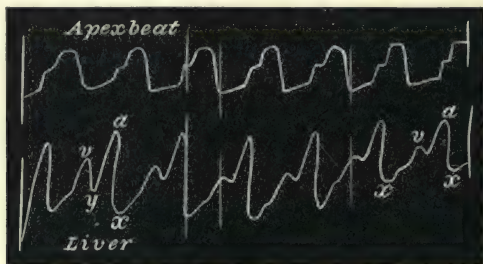 Apexbeat
a a
v v
y x x
x
Liver